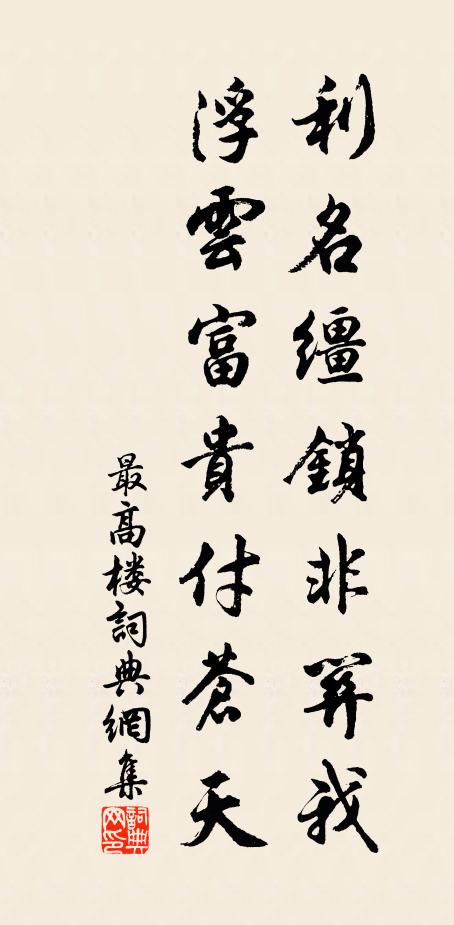 利名繮鎖非關我
浮雲富貴付蒼天
最高楼詞典網集
詞典
网印